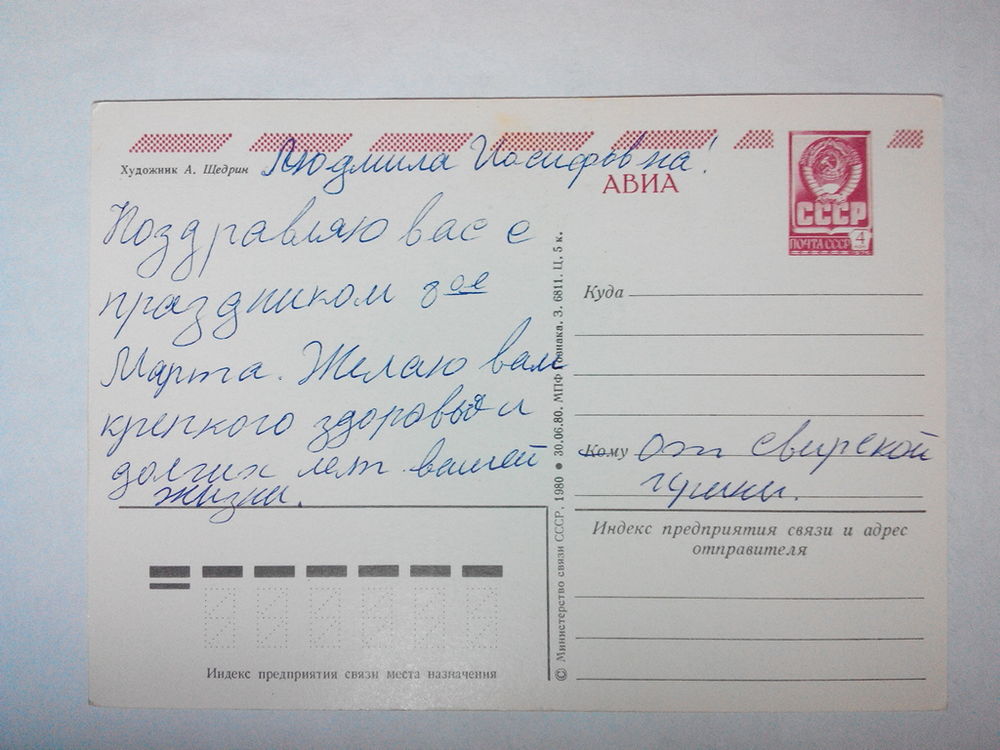 Художник А. Щедрин
Людмила Иосифовна!
АВИА
СССР
ПОЧТА СССР 4
Поздравляю вас с
праздником 8ое
Марта. Желаю вам
крепкого здоровья и
долгих лет вашей
жизни.
Куда
Кому от Свирской
Индекс предприятия связи и адрес
отправителя
Индекс предприятия связи места назначения
© Министерство связи СССР, 1980 ● 30.06.80. МПФ Гознака. З. 6811. Ц. 5 к.